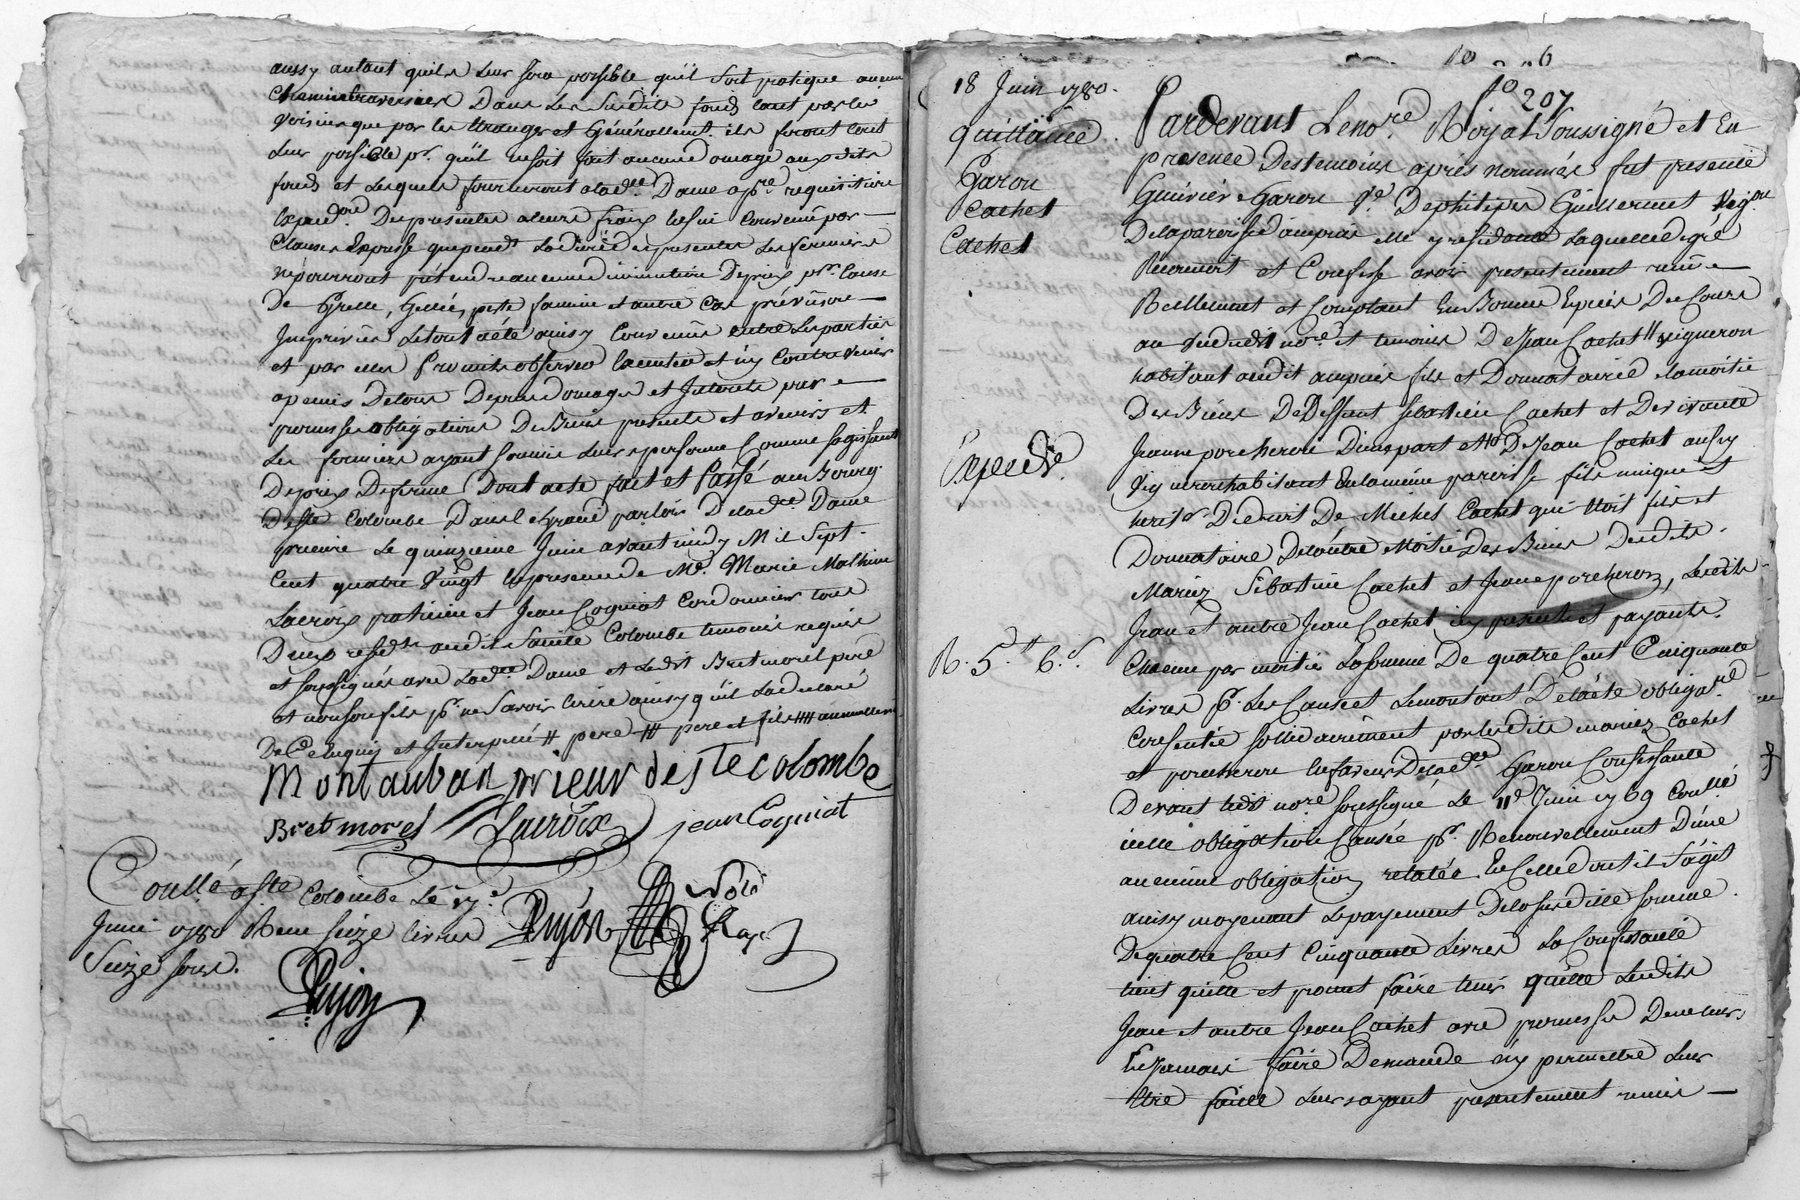 aussy autant quils leur sera possible quil soit pratiqué aucun
Chemin traversier Dans les susdits fonds tant par les
voisins que par les Etranger et Généralement ils feront tout
leur possible pr. qu'il ne soit fait aucune domage aux dits
fonds et lesquels fourniront a lad. Dame a pre. requisition
Des presentes a leurs fraix
Clause Expresse que pend. la durée des presentes les fermiers
ne pourront pretendre aucune diminution De prix pr. Cause
De Grelle, Gellée, peste famine et autre cas prévus ou
Imprévus Le tout a été ainsy Convenu entre les parties
et par elles Promis observer
a peinne De tous Depens domages et Interets par
promesse obligations De Biens presents et avenirs et
les fermiers ayant soumis leurs personne Comme s'agissant
De prix De ferme Dont acte fait et Passé au Bourg
De Ste Colombe Dans le grand parloir De lad. Dame
prieure Le quinzieme Juin avant midy Mil Sept
Cent quatre Vingt En presence de Me. Marie Mathieu
Lacroix praticien et Jean Cogniat Cordonnier tous
Deux resid. audit Sainte Colombe temoins requis
et soussignés avec lad. Dame et ledit Bretmorel pere
et non son fils pr. ne savoir écrire ainsy qu'il la declaré
De Ce Enquis et Interpellé # pere # pere et fils ## annuellement
Montauban prieur de ste colombe
Bretmorel Lacroix jean Cogniat
Coullé a Ste Colombe Le 17e.
Juin 1780 Reçu seize livres Pujon
Seize sous.
Pujon
fo 207
18 Juin 1780.
quittance
Garon
Cachet
Cachet
Pardevant Le nore. Royal Soussigné et En
presence Des temoins après nommés fut presente
Garon Ve. De philipes Guillermet Vig.on
De la paroisse d'ampuis elle y residante Laquelle de gré
Reconnoit et Confesse avoir presentement reçu
Reellement et Comptant En Bonne Espèces De Cours
au vû dudit nore. et temoins De Jean Cachet vigneron
habitant audit ampuis fils et Donnataire de la moitié
Des Biens De Deffunt Sebastien Cachet et De vivante
Jeanne porcheron D'une part et De Jean Cachet aussy
Vigneron habitant En la même paroisse fils unique et
herit. De Michel Cachet qui étoit fils et
Donnataire De l'autre Moitié Des Biens Desdits
Mariez Sebastien Cachet et Jeanne porcheron, Lesdits
Jean et autre Jean Cachet icy presents et payants
Expediée
R. 5# 6s.
Chacun par moitié La somme De quatre Cent Cinquante
Livres pr. Les Causes et Le montant De l'acte obliga.re
Consentie sollidairement par lesdits mariez Cachet
et porcheron En faveur De lad. Garon Confessante
Devant ledit nore. soussigné Le 11e Juin 1769 Coullé
icelle obligation Causée pr. Renouvellement D'une
ancienne obligation relatée En Celle dont il s'agit
ainsy moyenant Le payement De la susdite somme
De quatre Cent Cinquante Livres La Confessante
tient quitte et promet faire tenir quitte Lesdits
Jean et autre Jean Cachet avec promesse De ne leur
En Jamais faire Demande n'y permettre leur
être faitte leur ayant presentement remis